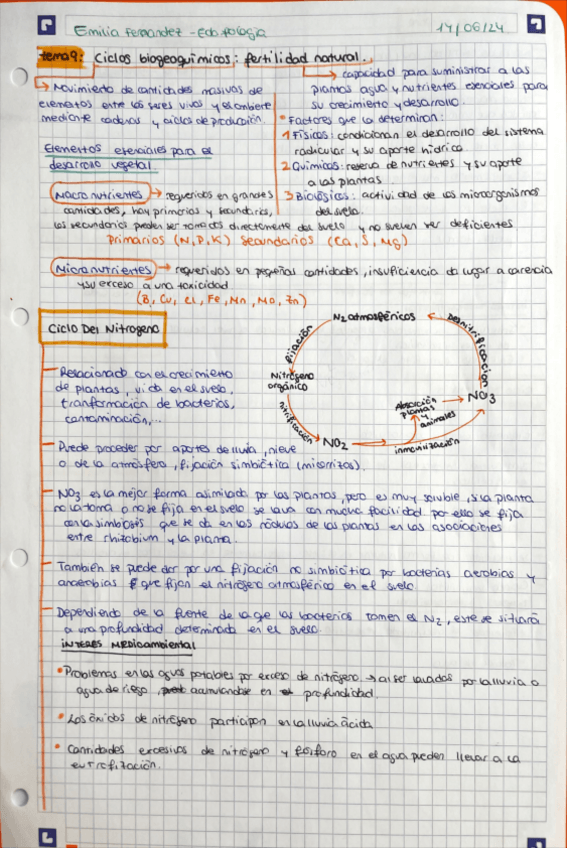 Emilia Fernandez - edafologia
14/06/24
tema 9: Ciclos biogeoquimicos: fertilidad natural.
→ Movimiento de cantidades masivas de
elementos entre los seres vivos y el ambiente
mediante cadenas y ciclos de producción.
Elementos esenciales para el
desarrollo vegetal
→ capacidad para suministrar a las
plantas agua y nutrientes esenciales para
su crecimiento y desarrollo.
• Factores que la determinan:
1 Físicos: condicionan el desarrollo del sistema
radicular y su aporte hídrico
2 Químicos: reserva de nutrientes y su aporte
a las plantas
3 Biológicos: actividad de los microorganismos
del suelo.
Macronutrientes → requeridos en grandes
cantidades, hay primarios y secundarios,
los secundarios pueden ser tomados directamente del suelo y no suelen ser deficientes
Primarios (N, P, K) Secundarios (Ca, S, Mg)
Micronutrientes → requeridos en pequeñas cantidades, insuficiencia da lugar a carencia
y su exceso a una toxicidad
(B, Cu, Cl, Fe, Mn, Mo, Zn)
Ciclo Del Nitrogeno
N2 atmosféricos
fijación
Desnitrificacion
Nitrógeno
orgánico
nitrificación
NO2
inmovilización
Absorción
plantas
y
animales
NO3
- Relacionado con el crecimiento
de plantas, vida en el suelo,
tranformación de bacterias,
contaminación,...
- Puede proceder por aportes de lluvia, nieve
o de la atmósfera, fijación simbiótica (micorrizas).
- NO3 es la mejor forma asimilada por las plantas, pero es muy soluble, si la planta
no la toma o no se fija en el suelo se lava con mucha facilidad por ello se fija
con la simbiosis que se da en los nódulos de las plantas en las asociaciones
entre rhizobium y la planta.
- También se puede dar por una fijación no simbiótica por bacterias aerobias y
anaerobias que fijan el nitrógeno atmosférico en el suelo
- Dependiendo de la fuente de la que las bacterias tomen el N2, este se situará
a una profundidad determinada en el suelo.
INTERES Medioambiental
• Problemas en las aguas potables por exceso de nitrógeno → al ser lavados por la lluvia o
agua de riego, acumulandose en profundidad
• Los óxidos de nitrógeno participan en la lluvia ácida
• Cantidades excesivas de nitrógeno y fósforo en el agua pueden llevar a la
eutrofización.